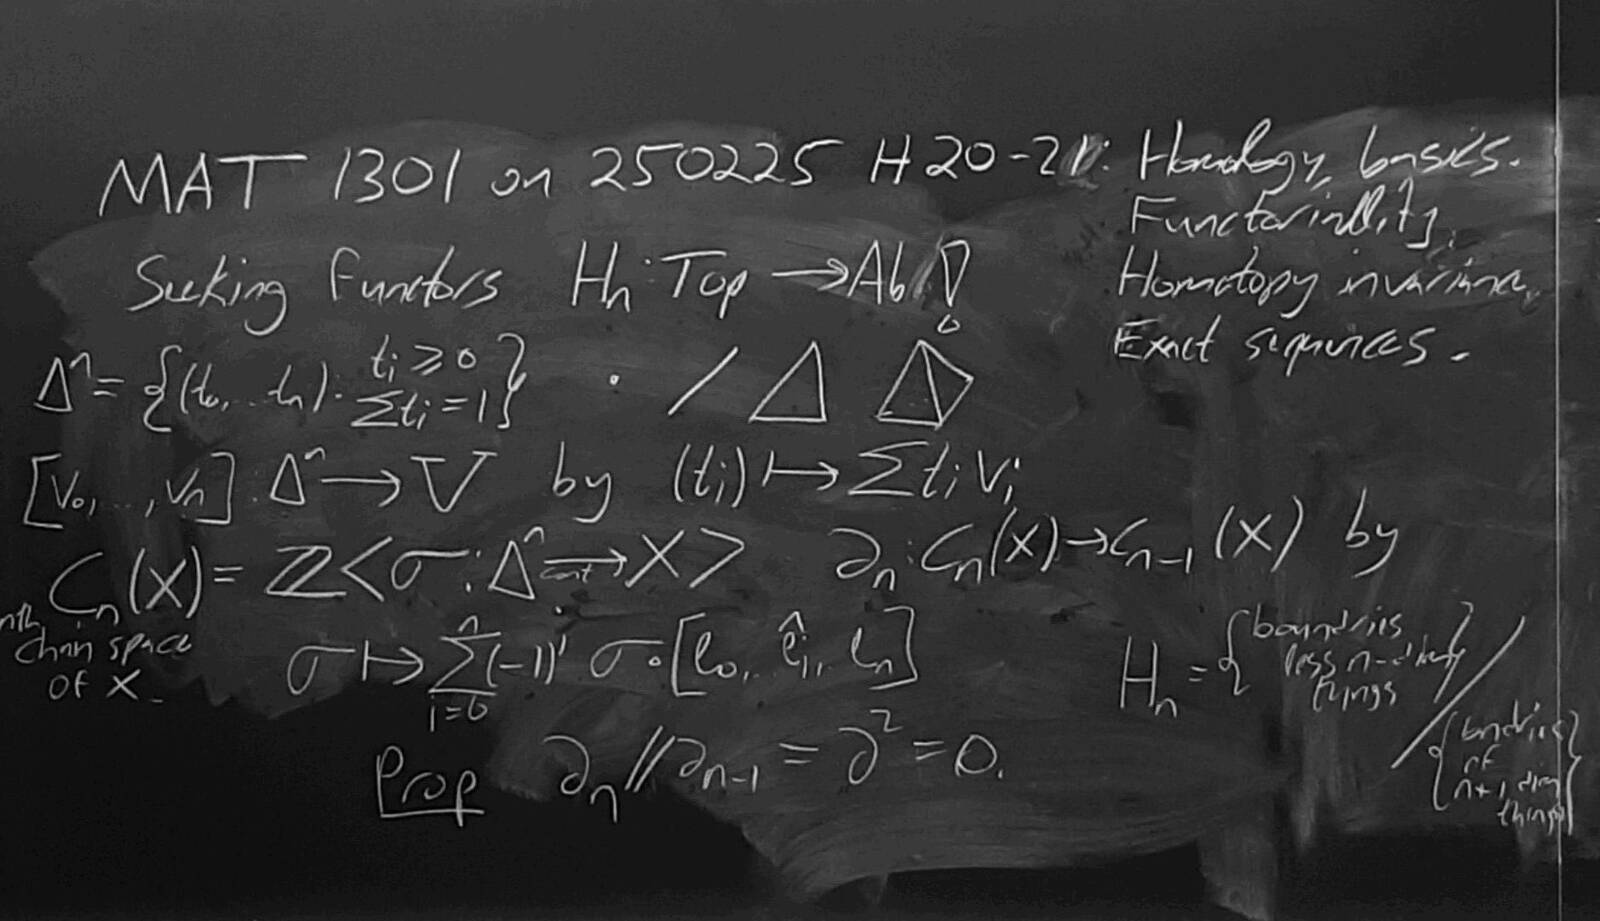 MAT 1301 on 250225 H20-21: Homology basics.
Functoriallity,
Homotopy invariance,
Exact sequences.
Seeking functors Hₙ: Top → Ab!
Δⁿ = {(t₀,...tₙ): tᵢ ≥ 0 Σtᵢ = 1}
[v₀,...,vₙ]: Δⁿ → V by (tᵢ) ↦ Σtᵢvᵢ
Cₙ(X) = ℤ<σ: Δⁿ →cont X> ∂ₙ: Cₙ(X) → Cₙ₋₁(X) by
nth chain space of X.
σ ↦ Σᵢ₌₀ⁿ (-1)ⁱ σ∘[e₀,..êᵢ,.eₙ]
Hₙ = {boundries less n-dim things} / {bndries of n+1 dim things}
Prop ∂ₙ//∂ₙ₋₁ = ∂² = 0.